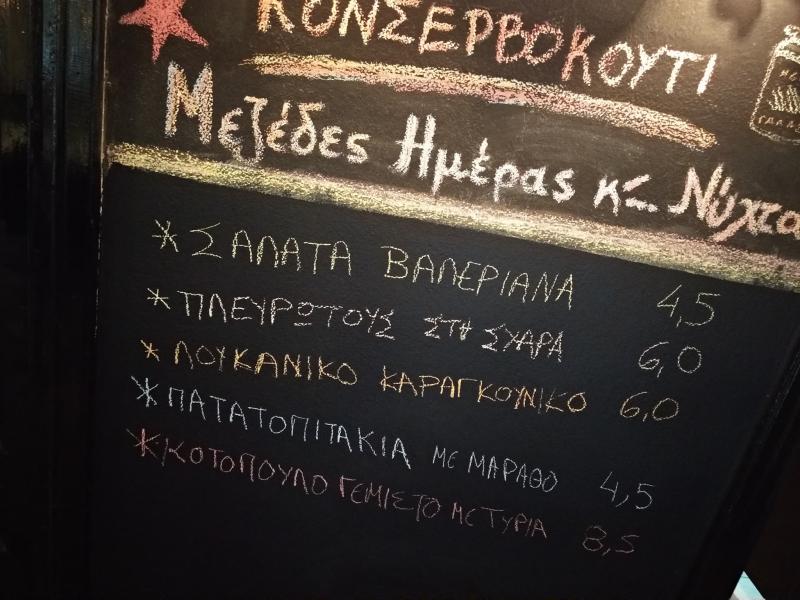 ΚΟΝΣΕΡΒΟΚΟΥΤΙ
Μεζέδες Ημέρας κ Νύχτα
*ΣΑΛΑΤΑ ΒΑΛΕΡΙΑΝΑ 4,5
*ΠΛΕΥΡΩΤΟΥΣ ΣΤΗ ΣΥΑΡΑ 6,0
*ΛΟΥΚΑΝΙΚΟ ΚΑΡΑΓΚΟΥΝΙΚΟ 6,0
*ΠΑΤΑΤΟΠΙΤΑΚΙΑ ΜΕ ΜΑΡΑΘΟ 4,5
*ΚΟΤΟΠΟΥΛΟ ΓΕΜΙΣΤΟ ΜΕ ΤΥΡΙΑ 8,5